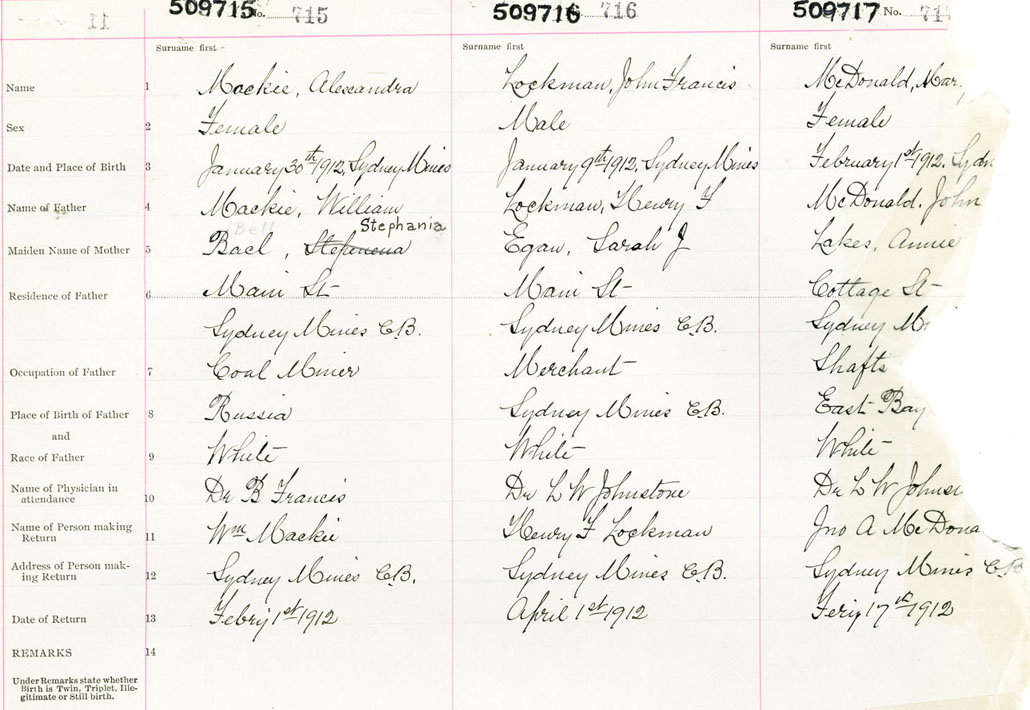 11 509715 No. 715 509716 716 509717 No. 71
Surname first Surname first Surname first
Name 1 Mackie, Alexandra Lockman, John Francis McDonald, Mar
Sex 2 Female Male Female
Date and Place of Birth 3 January 30th 1912, Sydney Mines January 9th 1912, Sydney Mines February 1st 1912, Sydn
Name of Father 4 Mackie, William Lockman, Henry F McDonald, John
Bell Stephania
Maiden Name of Mother 5 Bael, Egan, Sarah J Lakes, Annie
Residence of Father 6 Main St Main St Cottage St
Sydney Mines C.B. Sydney Mines C.B. Sydney M
Occupation of Father 7 Coal Miner Merchant Shafts
Place of Birth of Father 8 Russia Sydney Mines C.B. East Bay
and
Race of Father 9 White White White
Name of Physician in
attendance 10 Dr B Francis Dr L W Johnstone Dr L W Johns
Name of Person making
Return 11 Wm Mackie Henry F Lockman Jno A McDona
Address of Person mak-
ing Return 12 Sydney Mines C.B. Sydney Mines C.B. Sydney Mines C B
Date of Return 13 Febry 1st 1912 April 1st 1912 17th 1912
REMARKS 14
Under Remarks state whether
Birth is Twin, Triplet, Ille-
gitimate or Still-birth.